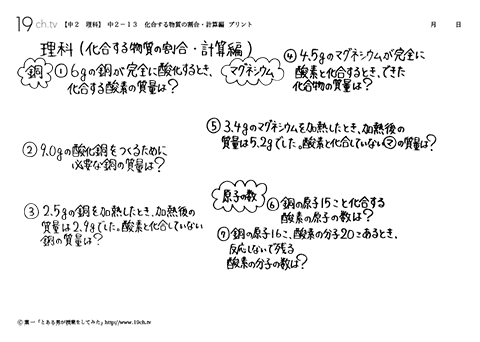 19ch.tv 【中2 理科】 中2-13 化合する物質の割合・計算編 プリント 月 日
理科(化合する物質の割合・計算編)
銅
①6gの銅が完全に酸化するとき、
化合する酸素の質量は?
②9.0gの酸化銅をつくるために
必要な銅の質量は?
③2.5gの銅を加熱したとき、加熱後の
質量は2.9gでした。酸素と化合していない
銅の質量は?
マグネシウム
④4.5gのマグネシウムが完全に
酸素と化合するとき、できた
化合物の質量は?
⑤3.4gのマグネシウムを加熱したとき、加熱後の
質量は5.2gでした。酸素と化合していないマの質量は?
原子の数
⑥銅の原子15こと化合する
酸素の原子の数は?
⑦銅の原子16こ、酸素の分子20こあるとき、
反応しないで残る
酸素の分子の数は?
Ⓒ葉一「とある男が授業をしてみた」http://www.19ch.tv